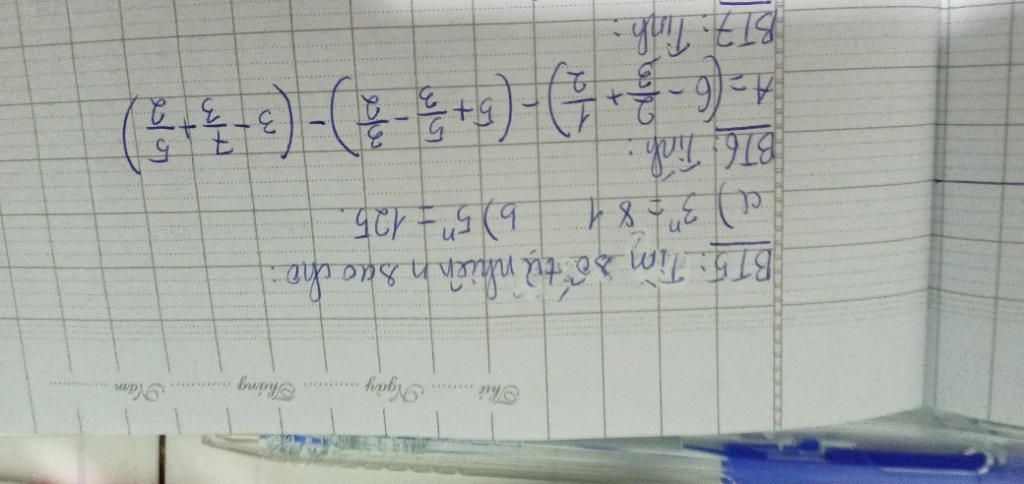 Thứ ........ Ngày ............ Tháng ............ Năm ............
BT5: Tìm số tự nhiên n sao cho:
a) 3ⁿ = 81 b) 5ⁿ = 125.
BT6: Tính:
A = (6 - 2/3 + 1/2) - (5 + 5/3 - 3/2) - (3 - 7/3 + 5/2)
BT7: Tính: